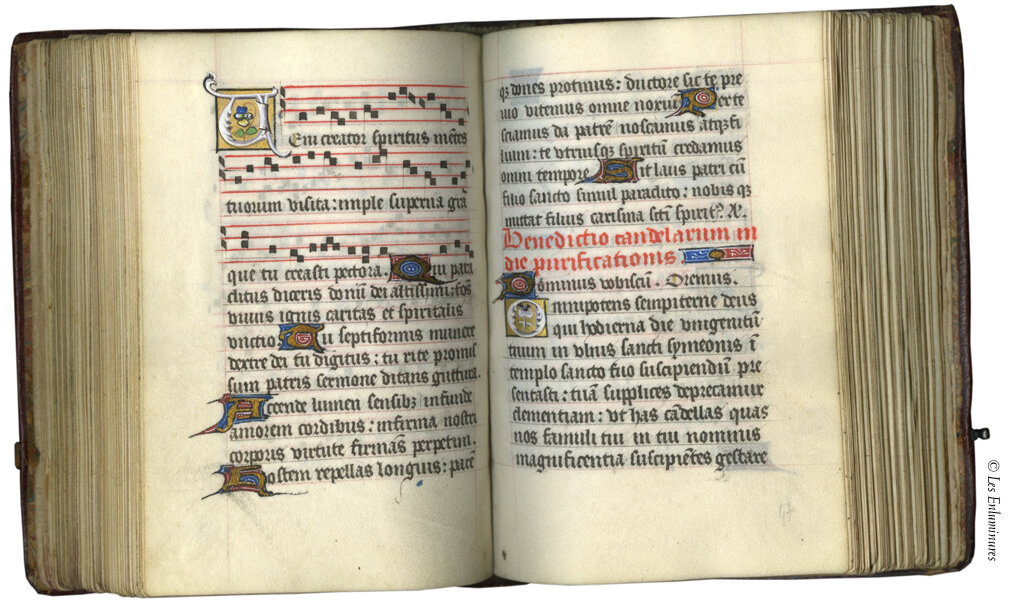 Veni creator spiritus mẽtes
tuorum visita: imple superna grã
que tu creasti pectora. Qui para
clitus diceris donũ dei altissimi: fõs
vivus ignis caritas et spiritalis
unctio. Tu septiformis munere
dextre dei tu digitus: tu rite promis
sum patris sermone ditans guttura.
Accende lumen sensibꝫ infunde
amorem cordibus: infirma nostri
corporis virtute firmans perpetim.
Hostem repellas longius: pacẽ
qꝫ dones protinus: ductore sic te pre
vio vitemus omne noxiũ. Per te
sciamus da patrẽ noscamus atqꝫ fi
lium: te utriusqꝫ spiritũ credamus
omni tempore. Sit laus patri cũ
filio sancto simul paraclito: nobis qꝫ
mittat filius carisma scti spirit9. Ã.
Benedictio candelarum in
die purificationis.
Dominus vobiscũ. Oremus.
Omnipotens sempiterne deus
qui hodierna die unigenitũ
tuum in ulnis sancti symeonis ĩ
templo sancto tuo suscipiendũ pre
sentasti: tuã supplices deprecamur
clementiam: ut has cãdellas quas
nos famuli tui in tui nominis
magnificentia suscipiẽtes gestare
© Les Enluminures